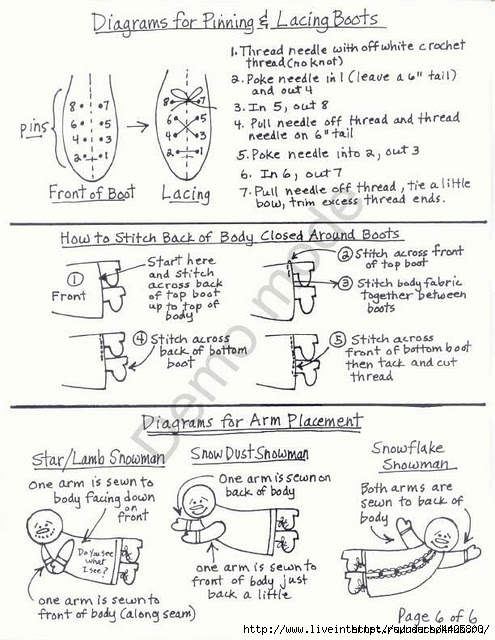 Diagrams for Pinning & Lacing Boots
1. Thread needle with off white crochet
thread (no knot)
2. Poke needle in 1 (leave a 6" tail)
and out 4
3. In 5, out 8
4. Pull needle off thread and thread
needle on 6" tail
5. Poke needle into 2, out 3
6. In 6, out 7
7. Pull needle off thread, tie a little
bow, trim excess thread ends.
pins
8 7
6 5
4 3
2 1
Front of Boot
8 7
6 5
4 3
2 1
Lacing
How to Stitch Back of Body Closed Around Boots
1
Front
Start here
and stitch
across back
of top boot
up to top of
body
2 Stitch across front
of top boot
3 Stitch body fabric
together between
boots
4 Stitch across
back of bottom
boot
5 Stitch across
front of bottom boot
then tack and cut
thread
Demo mode
Diagrams for Arm Placement
Star/Lamb Snowman
One arm is sewn to
body facing down
on
front
Do you see
what
I see?
one arm is sewn to
front of body (along seam)
Snow Dust Snowman
One arm is sewn on
back of body
one arm is sewn to
front of body just
back a little
Snowflake
Snowman
Both arms are
sewn to back of
body
Page 6 of 6